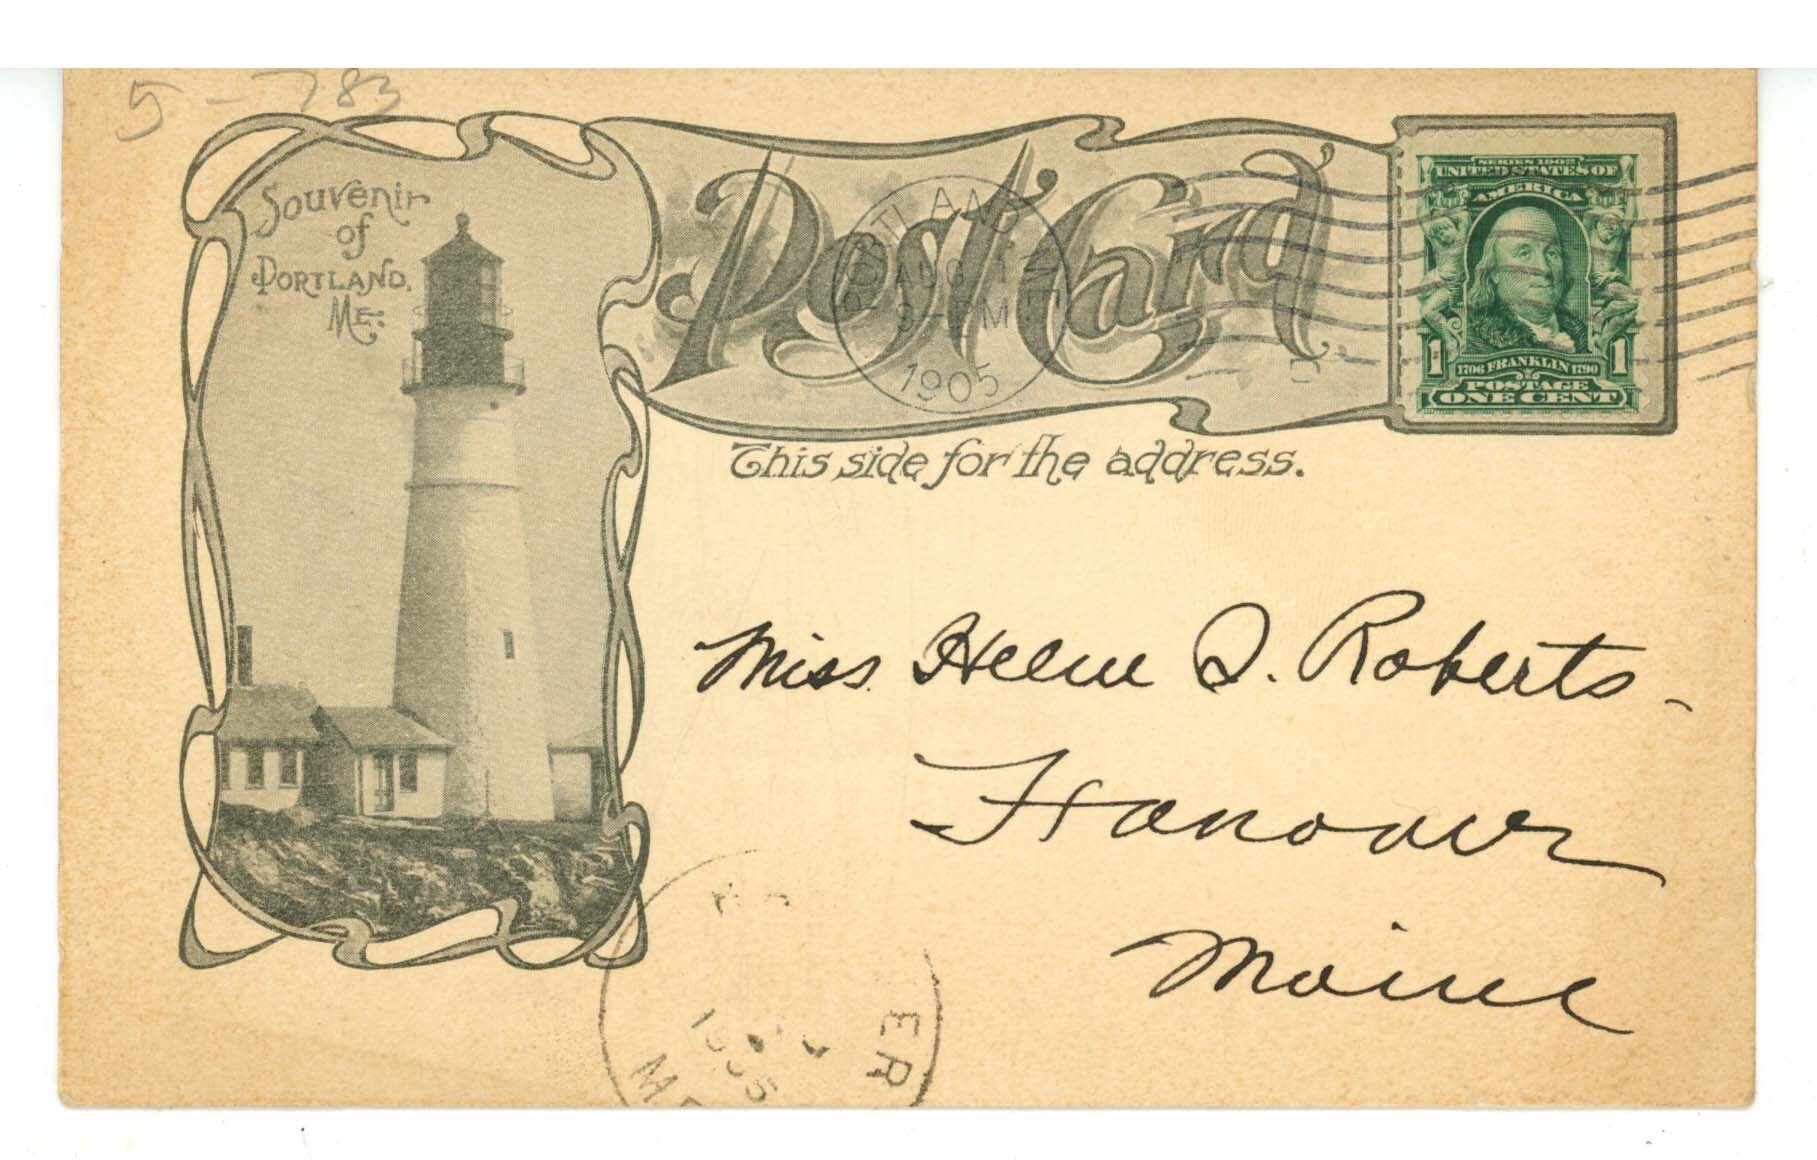 5-783
Souvenir
of
Portland,
Me:
Post Card
PORTLAND
AUG 1
9-PM
1905
SERIES 1902
UNITED STATES OF
AMERICA
1 1706 FRANKLIN 1790 1
POSTAGE
ONE CENT
This side for the address.
Miss Helen Q. Roberts-
Hanover
Maine
ER
ME